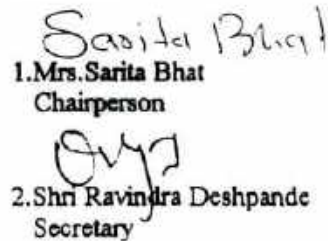 Sarita Bhat
1.Mrs.Sarita Bhat
Chairperson
2.Shri Ravindra Deshpande
Secretary